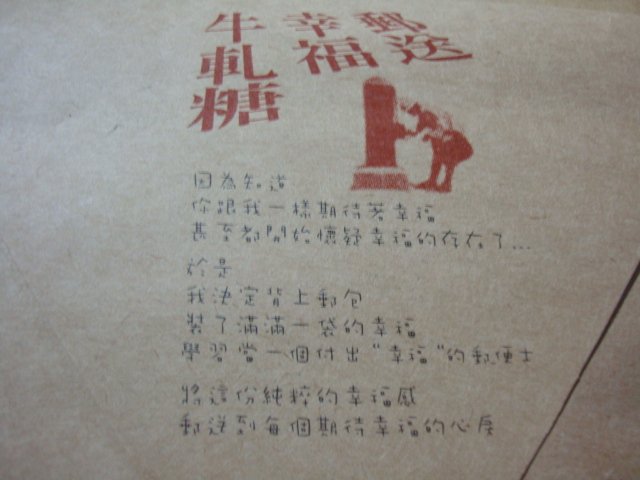 郵送
幸福
牛軋糖
因為知道
你跟我一樣期待著幸福
甚至都開始懷疑幸福的存在了...
於是
我決定背上郵包
裝了滿滿一袋的幸福
學習當一個付出"幸福"的郵便士
將這份純粹的幸福感
郵送到每個期待幸福的心房